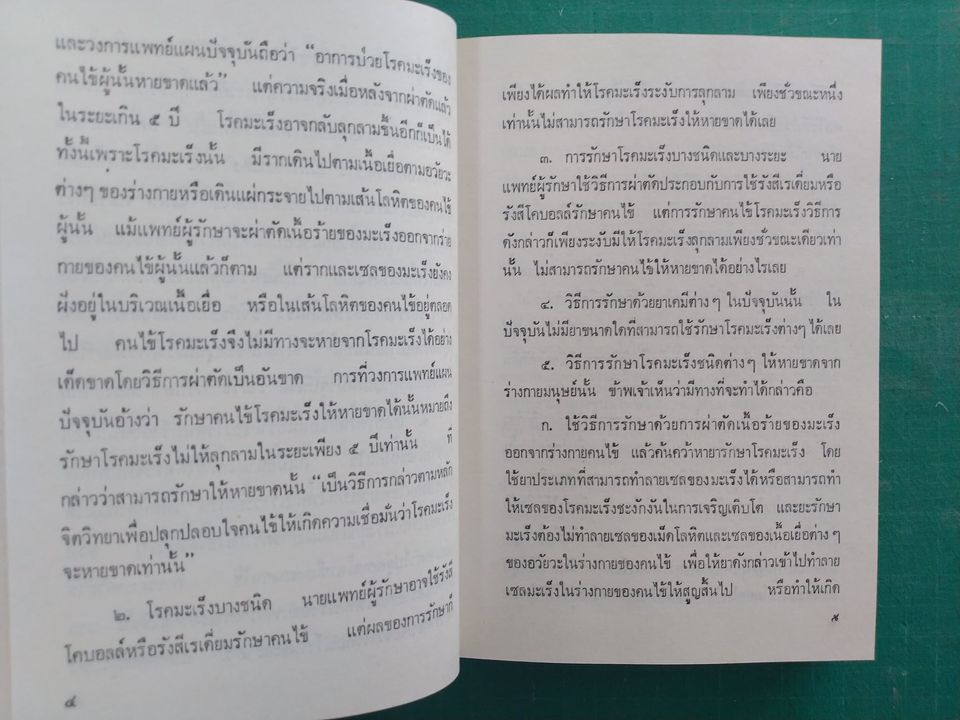 และวงการแพทย์แผนปัจจุบันถือว่า “อาการป่วยโรคมะเร็งของ
คนไข้ผู้นั้นหายขาดแล้ว” แต่ความจริงเมื่อหลังจากผ่าตัดแล้ว
ในระยะเกิน ๕ ปี โรคมะเร็งอาจกลับลุกลามขึ้นอีกก็เป็นได้
ทั้งนี้เพราะโรคมะเร็งนั้น มีรากเดินไปตามเนื้อเยื่อตามอวัยวะ
ต่างๆ ของร่างกายหรือเดินแผ่กระจายไปตามเส้นโลหิตของคนไข้
ผู้นั้น แม้แพทย์ผู้รักษาจะผ่าตัดเนื้อร้ายของมะเร็งออกจากร่าง
กายของคนไข้ผู้นั้นแล้วก็ตาม แต่รากและเซลของมะเร็งยังคง
ฝังอยู่ในบริเวณเนื้อเยื่อ หรือในเส้นโลหิตของคนไข้อยู่ตลอด
ไป คนไข้โรคมะเร็งจึงไม่มีทางจะหายจากโรคมะเร็งได้อย่าง
เด็ดขาดโดยวิธีการผ่าตัดเป็นอันขาด การที่วงการแพทย์แผน
ปัจจุบันอ้างว่า รักษาคนไข้โรคมะเร็งให้หายขาดได้นั้นหมายถึง
รักษาโรคมะเร็งไม่ให้ลุกลามในระยะเพียง ๕ ปีเท่านั้น ที่
กล่าวว่าสามารถรักษาให้หายขาดนั้น “เป็นวิธีการกล่าวตามหลัก
จิตวิทยาเพื่อปลุกปลอบใจคนไข้ให้เกิดความเชื่อมั่นว่าโรคมะเร็ง
จะหายขาดเท่านั้น”
๒. โรคมะเร็งบางชนิด นายแพทย์ผู้รักษาอาจใช้รังสี
โคบอลล์หรือรังสีเรเดี่ยมรักษาคนไข้ แต่ผลของการรักษาก็
๔
เพียงได้ผลทำให้โรคมะเร็งระงับการลุกลาม เพียงชั่วขณะหนึ่ง
เท่านั้นไม่สามารถรักษาโรคมะเร็งให้หายขาดได้เลย
๓. การรักษาโรคมะเร็งบางชนิดและบางระยะ นาย
แพทย์ผู้รักษาใช้วิธีการผ่าตัดประกอบกับการใช้รังสีเรเดี่ยมหรือ
รังสีโคบอลล์รักษาคนไข้ แต่การรักษาคนไข้โรคมะเร็งวิธีการ
ดังกล่าวก็เพียงระงับมิให้โรคมะเร็งลุกลามเพียงชั่วขณะเดียวเท่า
นั้น ไม่สามารถรักษาคนไข้ให้หายขาดได้อย่างไรเลย
๔. วิธีการรักษาด้วยยาเคมีต่างๆ ในปัจจุบันนั้น ใน
ปัจจุบันไม่มียาขนาดใดที่สามารถใช้รักษาโรคมะเร็งต่างๆ ได้เลย
๕. วิธีการรักษาโรคมะเร็งชนิดต่างๆ ให้หายขาดจาก
ร่างกายมนุษย์นั้น ข้าพเจ้าเห็นว่ามีทางที่จะทำได้กล่าวคือ
ก. ใช้วิธีการรักษาด้วยการผ่าตัดเนื้อร้ายของมะเร็ง
ออกจากร่างกายคนไข้ แล้วค้นคว้าหายารักษาโรคมะเร็ง โดย
ใช้ยาประเภทที่สามารถทำลายเซลของมะเร็งได้หรือสามารถทำ
ให้เซลของโรคมะเร็งชะงักงันในการเจริญเติบโต และยะรักษา
มะเร็งต้องไม่ทำลายเซลของเม็ดโลหิตและเซลของเนื้อเยื่อต่างๆ
ของอวัยวะในร่างกายของคนไข้ เพื่อให้ยาดังกล่าวเข้าไปทำลาย
เซลมะเร็งในร่างกายของคนไข้ให้สูญสิ้นไป หรือทำให้เกิด
๕